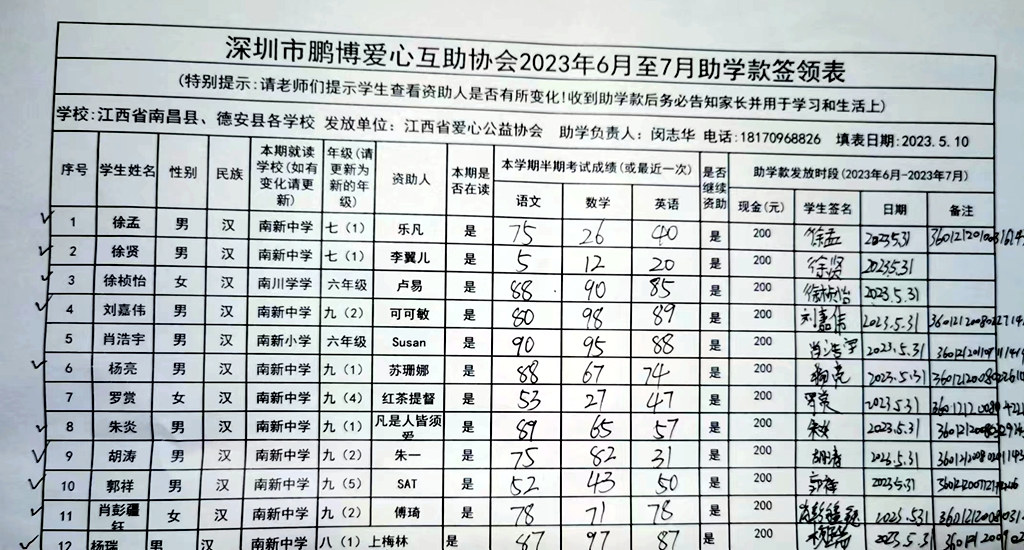 深圳市鹏博爱心互助协会2023年6月至7月助学款签领表
(特别提示:请老师们提示学生查看资助人是否有所变化!收到助学款后务必告知家长并用于学习和生活上)
学校:江西省南昌县、德安县各学校 发放单位:江西省爱心公益协会 助学负责人:闵志华 电话:18170968826 填表日期:2023.5.10
序号 学生姓名 性别 民族 本期就读学校(如有变化请更新) 年级(请更新为新的年级) 资助人 本期是否在读 本学期半期考试成绩(或最近一次) 是否继续资助 助学款发放时段(2023年6月-2023年7月)
语文 数学 英语 现金(元) 学生签名 日期 备注
1 徐孟 男 汉 南新中学 七(1) 乐凡 是 75 26 40 是 200 徐孟 2023.5.31
2 徐贤 男 汉 南新中学 七(1) 李翼儿 是 5 12 20 是 200 徐贤 2023.5.31
3 徐祯怡 女 汉 南川学学 六年级 卢易 是 88 90 85 是 200 徐祯怡 2023.5.31
4 刘嘉伟 男 汉 南新中学 九(2) 可可敏 是 80 98 89 是 200 刘嘉伟 2023.5.31
5 肖浩宇 男 汉 南新小学 六年级 Susan 是 90 95 88 是 200 肖浩宇 2023.5.31
6 杨亮 男 汉 南新中学 九(1) 苏珊娜 是 88 67 74 是 200 杨亮 2023.5.31
7 罗赏 女 汉 南新中学 九(4) 红茶提督 是 53 27 47 是 200 罗赏 2023.5.31
8 朱炎 男 汉 南新中学 九(1) 凡是人皆须爱 是 89 65 57 是 200 朱炎 2023.5.31
9 胡涛 男 汉 南新中学 九(2) 朱一 是 75 82 31 是 200 胡涛 2023.5.31
10 郭祥 男 汉 南新中学 九(5) SAT 是 52 43 50 是 200 郭祥 2023.5.31
11 肖彭疆钰 女 汉 南新中学 九(2) 傅琦 是 78 71 78 是 200 2023.5.31
12 杨瑞 男 汉 南新中学 八(1) 上梅林 是 87 97 87 是 200 杨瑞 2023.5.31